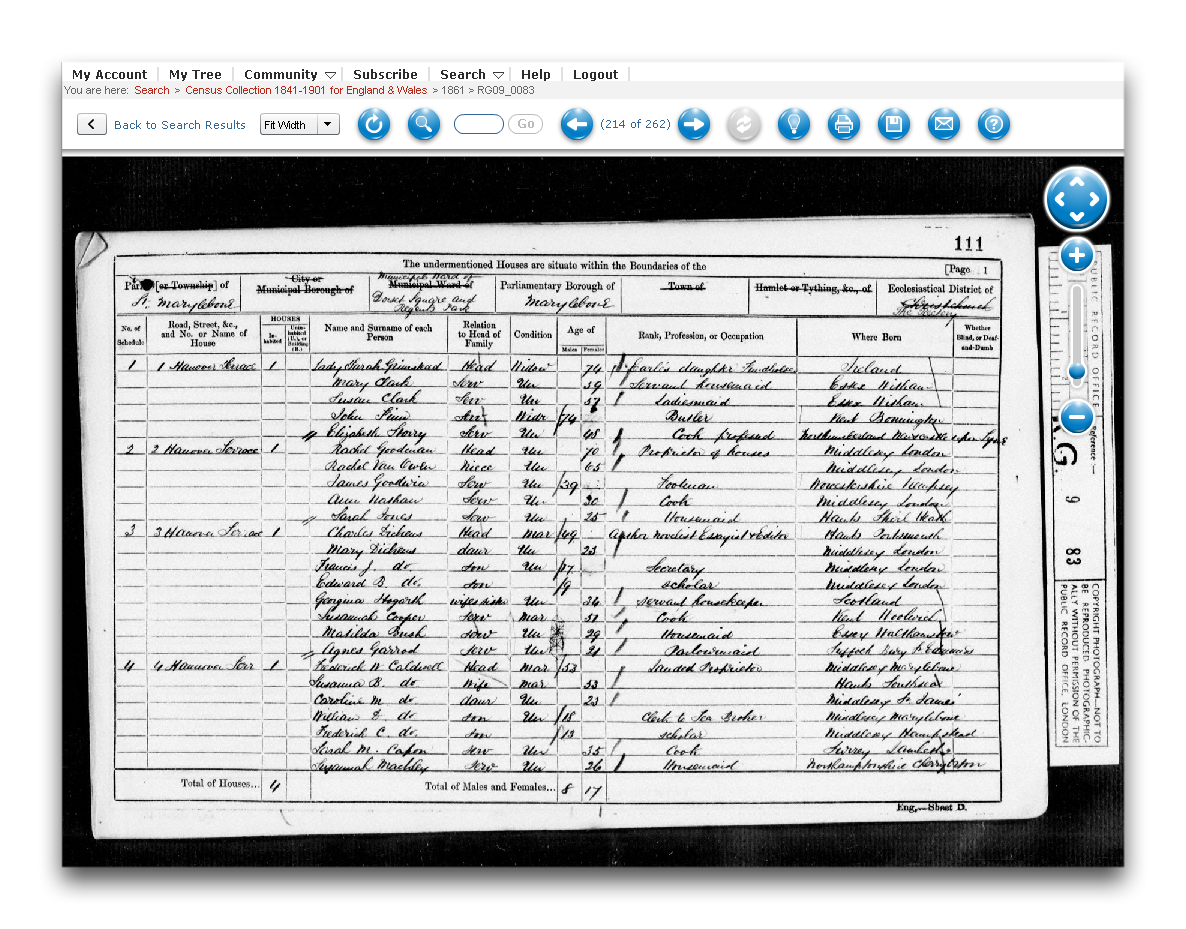 My Account My Tree Community Subscribe Search Help Logout
You are here: Search > Census Collection 1841-1901 for England & Wales > 1861 > RG09_0083
Back to Search Results Fit Width Go (214 of 262)
111
The undermentioned Houses are situate within the Boundaries of the [Page 1
[or Township] of City or Municipal Borough of Municipal Ward of Municipal Ward of Parliamentary Borough of Town of Hamlet or Tything, &c., of Ecclesiastical District of
St. Marylebone Dorset Square and Regents Park Marylebone The Rectory
No. of Schedule Road, Street, &c., and No. or Name of House HOUSES Inhabited Uninhabited (U.), or Building (B.) Name and Surname of each Person Relation to Head of Family Condition Age of Males Females Rank, Profession, or Occupation Where Born Whether Blind, or Deaf-and-Dumb
1 1 Hanover Terrace 1 Lady Sarah Grimstead Head Widow 74 Earl's daughter Fundholder Ireland
Mary Clark Serv Un 39 Servant housemaid Essex Witham
Susan Clark Serv Un 37 Ladiesmaid Essex Witham
John Serv Widr 74 Butler Kent Bonnington
Elizabeth Storry Serv Un 48 Cook professed Northumberland Newcastle upon Tyne
2 2 Hanover Terrace 1 Rachel Goodman Head Un 70 Proprietor of houses Middlesex London
Rachel Van Oven Niece Un 65 Middlesex London
James Goodwin Serv Un 29 Footman Worcestershire Kempsey
Ann Nathan Serv Un 30 Cook Middlesex London
Sarah Jones Serv Un 25 Housemaid Hants
3 3 Hanover Terrace 1 Charles Dickens Head Mar 49 Author Novelist Essayist & Editor Hants Portsmouth
Mary Dickens daur Un 23 Middlesex London
Francis J. do. son Un 17 Secretary Middlesex London
Edward B. do. son 9 scholar Middlesex London
Georgina Hogarth wifes sister Un 34 servant housekeeper Scotland
Susannah Cooper Serv Mar 31 Cook Kent Woolwich
Matilda Bush Serv Un 29 Housemaid Essex Walthamstow
Agnes Garrod Serv Un 21 Parlourmaid Suffolk Bury St Edmunds
4 4 Hanover Terr 1 Frederick W. Caldwell Head Mar 53 Landed Proprietor Middlesex Marylebone
Susanna B. do Wife Mar 53 Hants Southsea
Caroline M. do daur Un 23 Middlesex St James
William do son Un 18 Clerk to Tea Broker Middlesex Marylebone
Frederick C. do. son 13 scholar Middlesex Hampstead
Sarah M. Capon Serv Un 35 Cook Surrey Lambeth
Susannah Serv Un 26 Housemaid Northamptonshire
Total of Houses... 4 Total of Males and Females... 8 17
Eng.—Sheet D.
PUBLIC RECORD OFFICE
Reference :—
R.G. 9 83
COPYRIGHT PHOTOGRAPH—NOT TO
BE REPRODUCED PHOTOGRAPHIC-
ALLY WITHOUT PERMISSION OF THE
PUBLIC RECORD OFFICE, LONDON